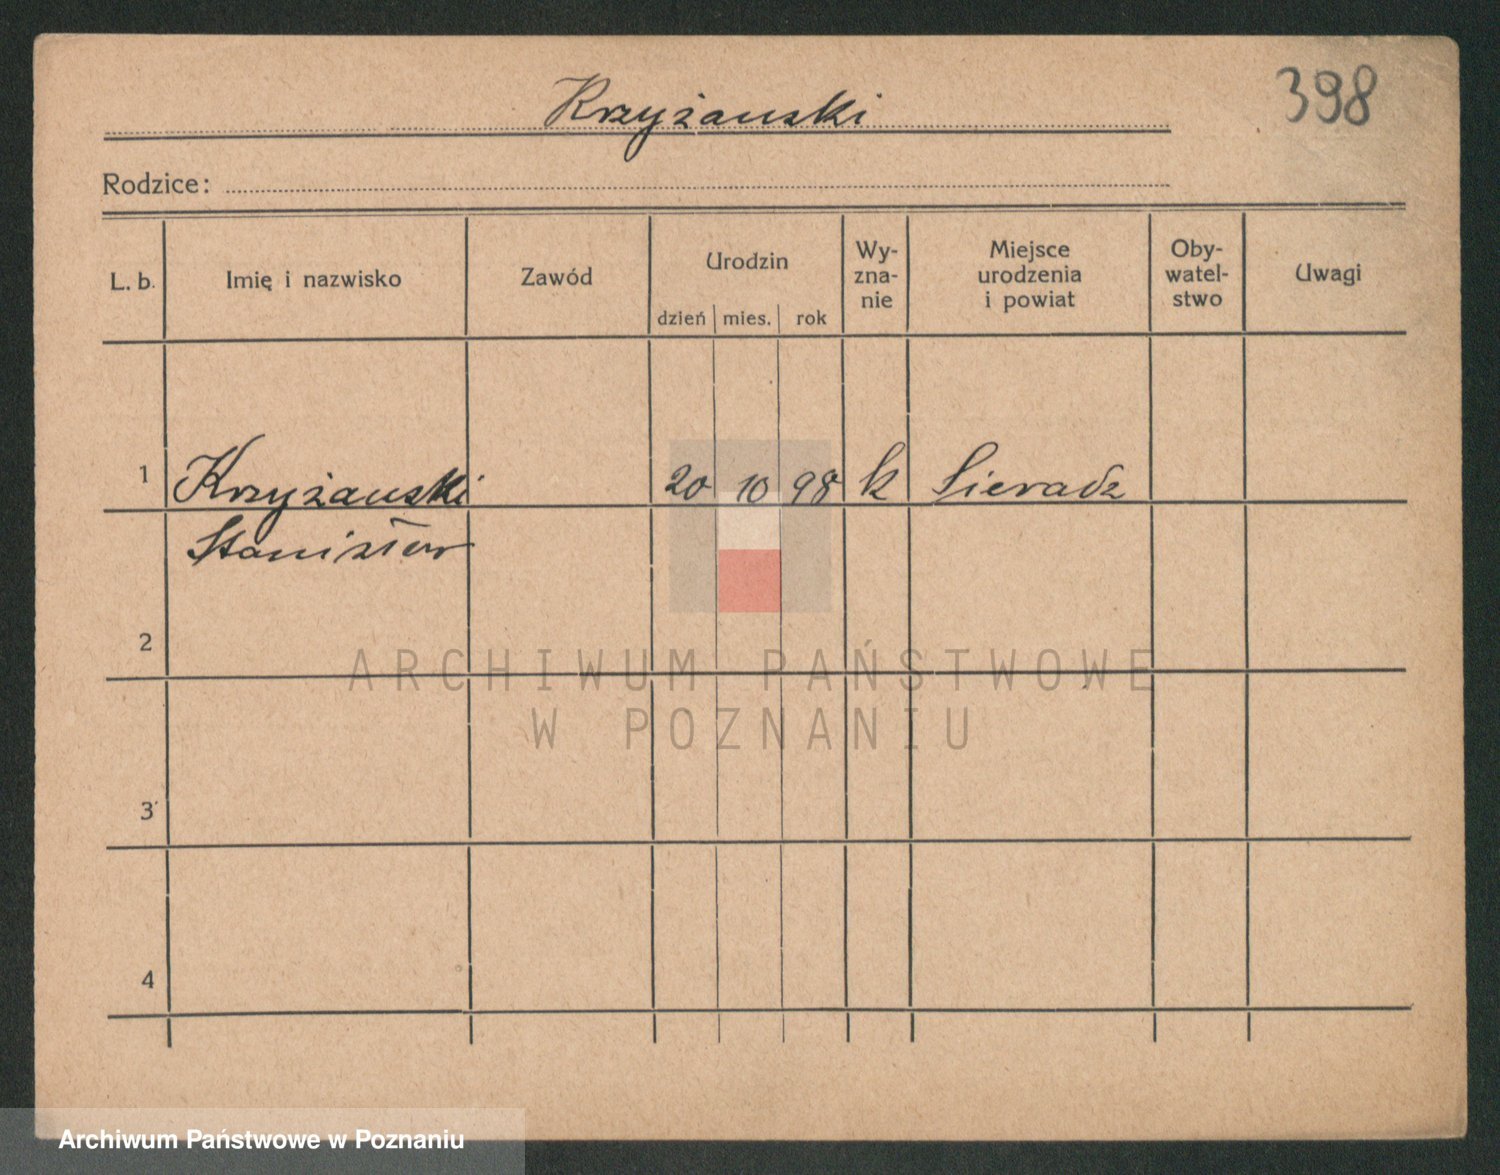 Krzyżanski
398
Rodzice:
L. b.
Imię i nazwisko
Zawód
Urodzin
dzień mies. rok
Wy-
zna-
nie
Miejsce
urodzenia
i powiat
Oby-
watel-
stwo
Uwagi
1 Krzyżanski 20 10 98 k Sieradz
Stanisław
2
ARCHIWUM PAŃSTWOWE
W POZNANIU
3
4
Archiwum Państwowe w Poznaniu